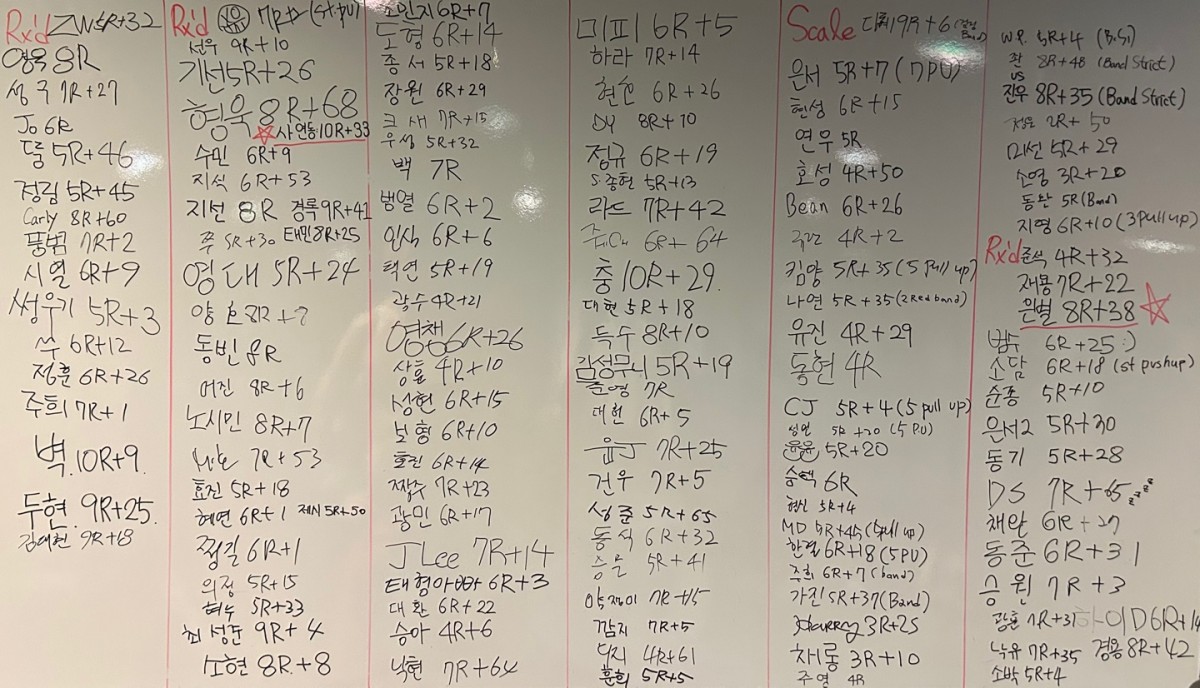 Rx'd ZW 5R+32
영욱 8R
성국 7R+27
Jo 6R
둘 5R+46
정림 5R+45
Carly 8R+60
풍범 7R+2
시열 6R+9
쌩우기 5R+3
쑤 6R+12
정훈 6R+26
주희 7R+1
벽 10R+9
두현 9R+25
김예헌 9R+18
Rx'd 7R (st.pu)
선우 9R+10
기선 5R+26
형욱 8R+68
사 연동 10R+33
수민 6R+9
지석 6R+53
지선 8R 경록 9R+41
쭈 5R+30 태민 8R+25
영대 5R+24
양 8R+7
동빈 8R
여진 8R+6
노시민 8R+7
7R+53
효진 5R+18
혜연 6R+1 제시 5R+50
찡길 6R+1
의정 5R+15
혁수 5R+33
최성준 9R+4
소현 8R+8
소민지 6R+7
도형 6R+14
종서 5R+18
장원 6R+29
크새 7R+15
우성 5R+32
백 7R
범열 6R+2
인식 6R+6
택연 5R+19
광수 4R+21
영챈 6R+26
상훈 4R+10
성현 6R+15
보형 6R+10
효진 6R+14
짭수 7R+23
광민 6R+17
J Lee 7R+14
태형아빠 6R+3
대환 6R+22
승아 4R+6
낙현 7R+64
미피 6R+5
하라 7R+14
현호 6R+26
DY 8R+10
정규 6R+19
S.종현 5R+13
라드 7R+42
6R+64
충 10R+29
대현 5R+18
득수 8R+10
김성무니 5R+19
준영 7R
대헌 6R+5
윤J 7R+25
건우 7R+5
성준 5R+65
동석 6R+32
승윤 5R+41
약쟁이 7R+15
깜지 7R+5
단지 4R+61
훈희 5R+5
Scale 9R+6
은서 5R+7 (7PU)
현성 6R+15
연우 5R
호성 4R+50
Bean 6R+26
4R+2
킴양 5R+35 (5 pull up)
나연 5R+35 (2 Red band)
유진 4R+29
동현 4R
CJ 5R+4 (5 pull up)
성연 5R+20 (5 PU)
윤윤 5R+20
승택 6R
형신 5R+4
MD 5R+45 (5pull up)
한결 6R+18 (5PU)
주희 6R+7 (band)
가진 5R+37 (Band)
Harry 3R+25
채롱 3R+10
주영 4R
W.P. 5R+4 (B.S)
찬US 8R+48 (Band Strict)
진우 8R+35 (Band Strict)
2R+50
미선 5R+29
소영 3R+20
동찬 5R (Band)
지영 6R+10 (3pull up)
Rx'd 준석 4R+32
재용 7R+22
은별 8R+38
범수 6R+25 :)
소담 6R+18 (st pushup)
순종 5R+10
은서2 5R+30
동기 5R+28
DS 7R+65 zzzz
채완 6R+27
동준 6R+31
승원 7R+3
광훈 7R+31 하이D 6R+14
녹유 7R+35 경용 8R+42
소박 5R+4